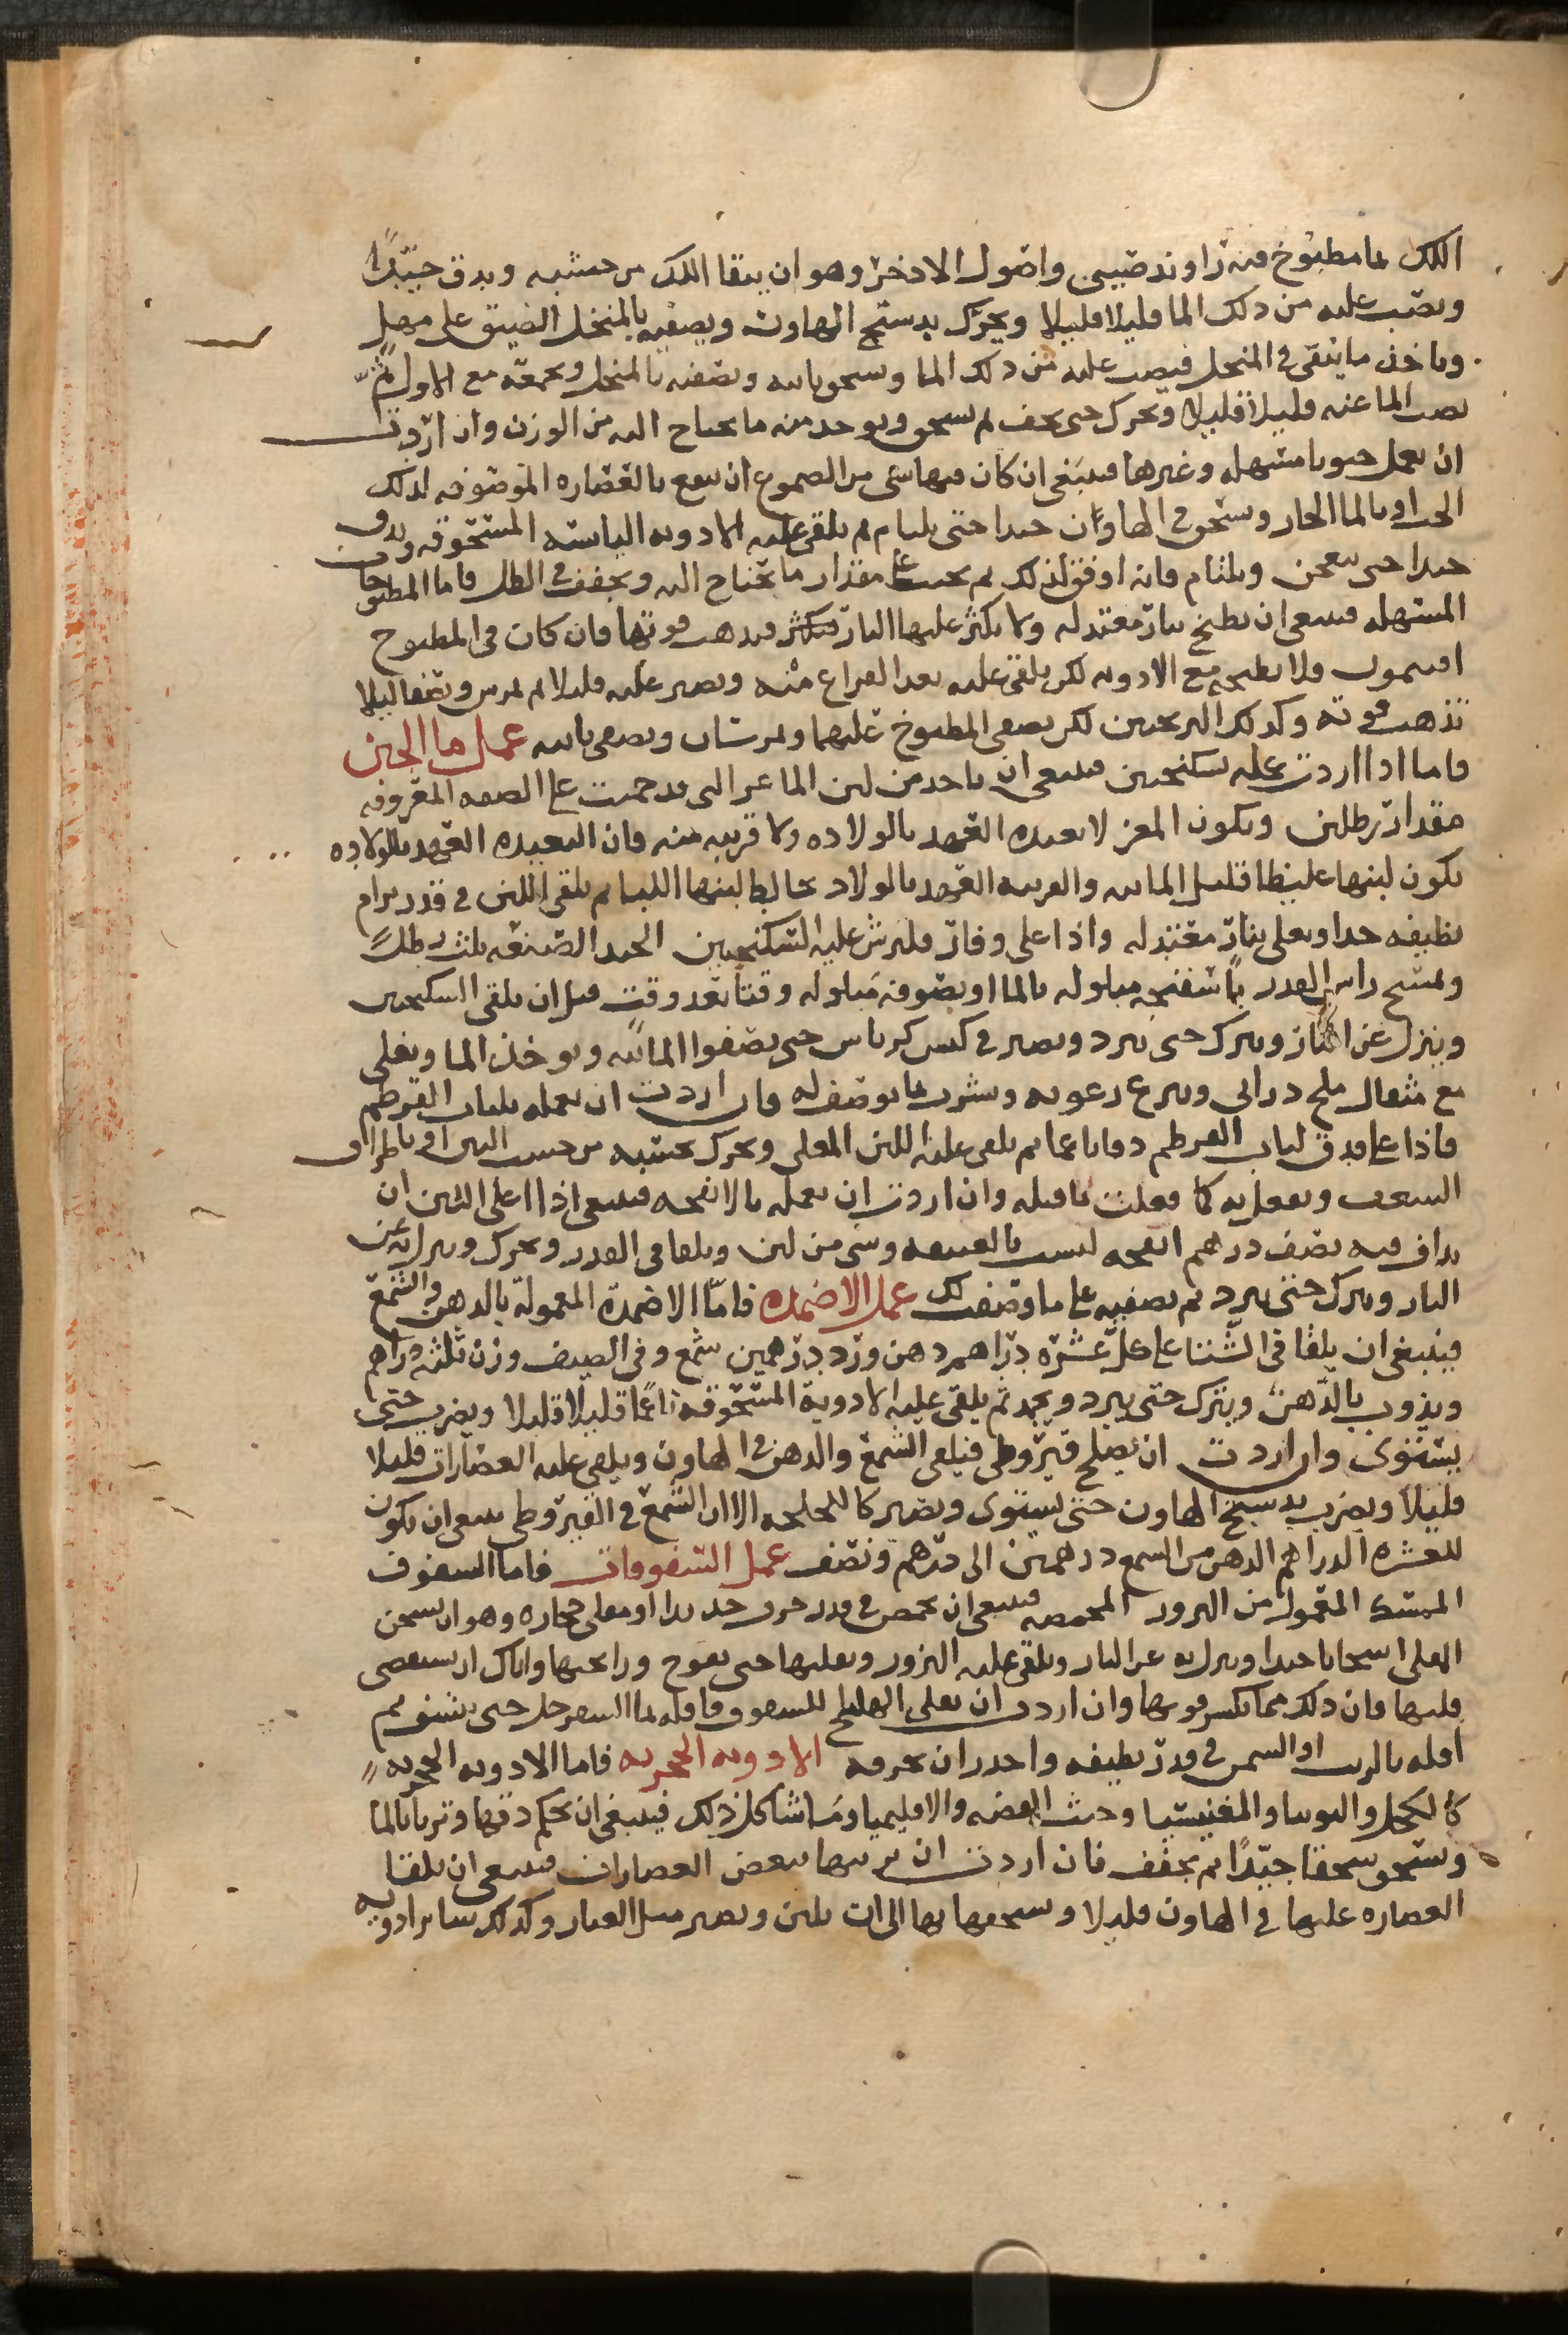 اللك بما مطبوخ فيه زراوند صيني واصول الاذخر وهو ان ينقا اللك من خشبه ويدق جيّدًا
ويصب عليه من ذلك الما قليلا قليلا ويحرّك بدستج الهاون ويصفيه بالمنخل الضيق على مهل
وياخذ ما يبقى في المنخل فيصب عليه من ذلك الما ويسحق ثانيه ويصفيه بالمنخل ويجمعه مع الاول ثم
يصب الما عنه قليلا قليلا ويحرك حتى يجف ثم يسحق ويوخذ منه ما يحتاج اليه من الوزن وان اردت
ان تعمل حبوبا مسهله وغيرها فينبغي ان كان فيها شي من الصموغ ان ينقع بالعصاره الموصوفه لذلك
الحب او بالما الحار ويسحق في الهاون جيدا حتى يلتام ثم يلقى عليه الادويه اليابسه المسحوقه ويدق
جيدا حتى ينعجن ويلتام فانه اوفق لذلك ثم يحبب على مقدار ما يحتاج اليه ويجفف في الظل فاما المطبوخات
المسهله فينبغي ان يطبخ بنار معتدله ولا يكثر عليها النار فيذهب قوتها فان كان في المطبوخ
افتيمون فلا يطبخه مع الادويه لكن يلقى عليه بعد الفراغ منه ويصير عليه قليلا ثم يمرس ويصفا ليلا
تذهب قوته وكذلك الترنجبين لكن يصفى المطبوخ عليهما ويمرسان ويصفى ثانيه عمل ما الجبن
فاما اذا اردت عمله بسكنجبين فينبغي ان ياخذ من لبن الماعز التي قد حميت على الصفه المعروفه
مقدار رطلين ويكون المعز لا بعيده العهد بالولاده ولا قريبه منه فان البعيده العهد بالولاده
يكون لبنها غليظا قليل المائيه والقريبه العهد بالولاد يخالط لبنها اللبا ثم يلقى اللبن في قدر برام
نظيفه جدا ويغلى بنار معتدله واذا غلى وفار فليرش عليه السكنجبين الجيد الصنعه ثلث رطل
ويمسح راس القدر باسفنجه مبلوله بالما او بصوفه مبلوله وقتا بعد وقت قبل ان يلقى السكنجبين
وينزل عن النار ويترك حتى يبرد ويصير في كيس كرباس حتى يصفوا المائيه ويوخذ الما ويغلى
مع مثقال ملح دراني وينزع رغوته ويشرب بما يوصف له فان اردت ان تعمله بلباب القرطم
فاذا غلى فدق لباب القرطم دقا ناعما ثم يلقى عليه اللبن المغلى ويحرك بخشبه من خشب التين او باطراف
السعف ويفعل به كما فعلت بما قبله وان اردت ان تعمله بالانفحه فينبغي اذا اغلى اللبن ان
يداف فيه نصف درهم انفحه ليست بالعتيقه وشي من لبن ويلقا في القدر ويحرك وينزل به عن
النار ويترك حتى يبرد ثم يصفيه على ما وصفت لك عمل الاضمده فامّا الاضمدة المعمولة بالدهن والشمع
فينبغي ان يلقا في الشتا على كل عشره دراهم دهن وزد درهمين شمع وفي الصيف وزن ثلثه دراهم
ويذوب بالدّهن ويترك حتى يبرد ويجمد ثم يلقى عليه الادوية المسحوقه ناعما قليلا قليلا ويضرب حتى
يستوى وان اردت ان تصلح قيروطى فيلقى الشمع والدهن في الهاون ويلقى عليه العصارات قليلا
قليلا ويضرب بدستج الهاون حتى يستوى ويصير الا ان الشمع في القيروطى ينبغي ان يكون
للعشره الدراهم الدهن من الشمع درهمين الى درهم ونصف عمل السفوفات فاما السفوف
الممسك المعمول من البزور المحمصه فينبغي ان يحمص في قدر خزف جديدا او مقلى حجاره وهو ان يسخن
المقلى اسخانا جيدا وينزل به عن النار ويلقى عليه البزور ويقلبها حتى يفوح ورائحتها واياك ان يستقصى
قليها فان ذلك مما يكسر قوتها وان اردت ان تغلى الهليلج للسفوف فاقله بما السفرجل حتى ينشف ثم
اقله بالزيت او السمن في قدر نظيفه واحذر ان يحرقه الادويه الحجريه فاما الادويه الحجريه
كالكحل والتوتيا والمغنيسيا وخبث الفضه والاقليميا وما شاكل ذلك فينبغي ان يحكم دقها وتربا بالما
ويسحق سحقا جيّدًا ثم يجفف فان اردت ان تربيها ببعض العصارات فينبغي ان يلقا
العصاره عليها في الهاون قليلا ويسحقها بها الى ان يلين ويصير مثل الغبار وكذلك ساير ادويه